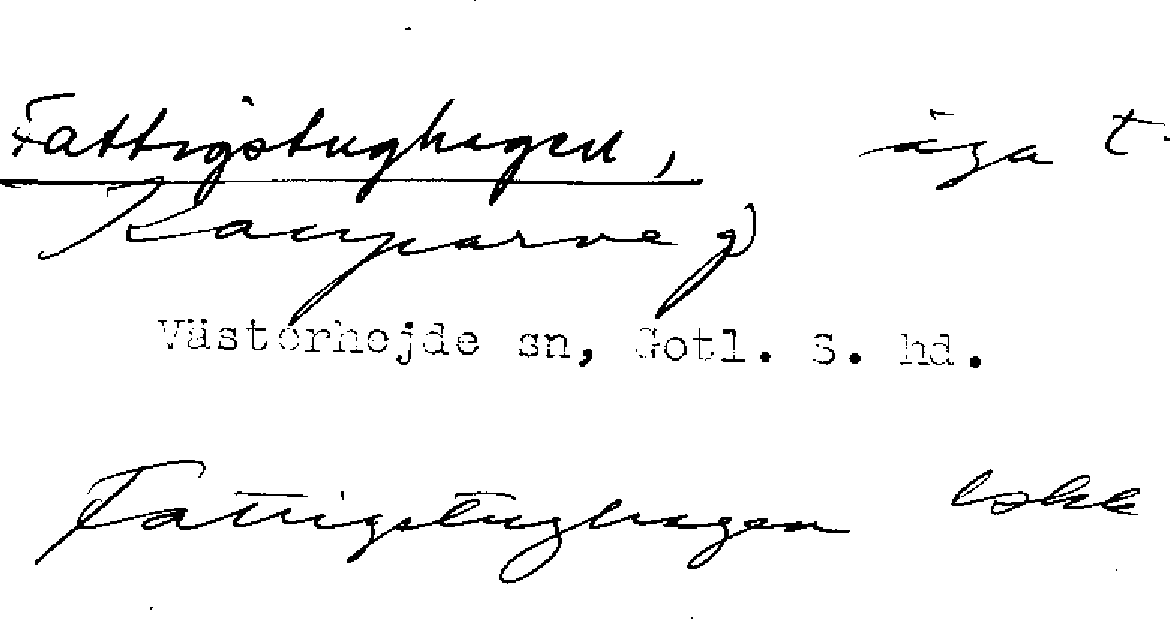 Fattigstughagen, äga t.
Kauparve g)
Västerhejde sn, Gotl. S. hd.
Fattigstughagen